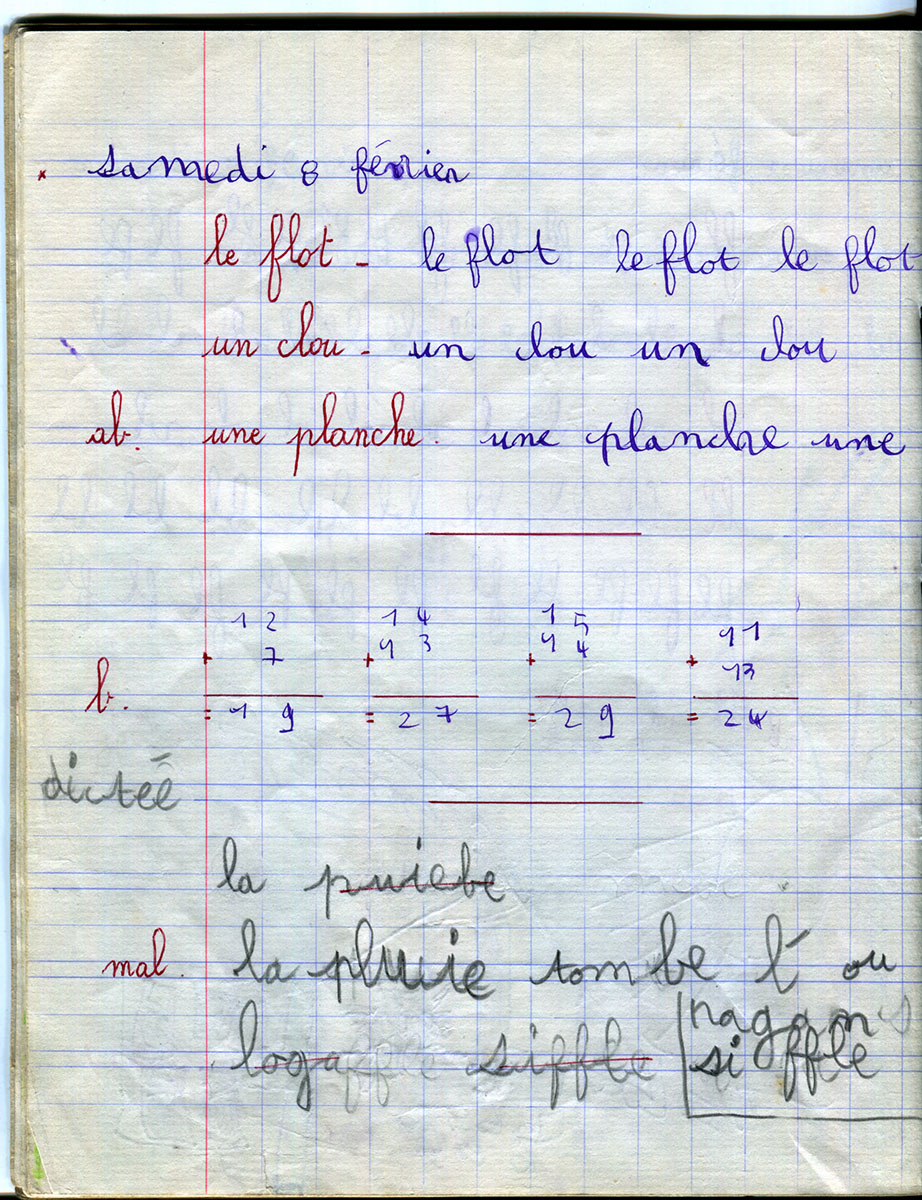 samedi 8 février
le flot - le flot le flot le flot
un clou - un clou un clou
ab. une planche. une planche une
12 14 15 11
+ 7 + 13 + 14 + 13
b. = 19 = 27 = 29 = 24
dictée
la puiebe
mal. la pluie tombe l' ou
siffle nagan s
siffle